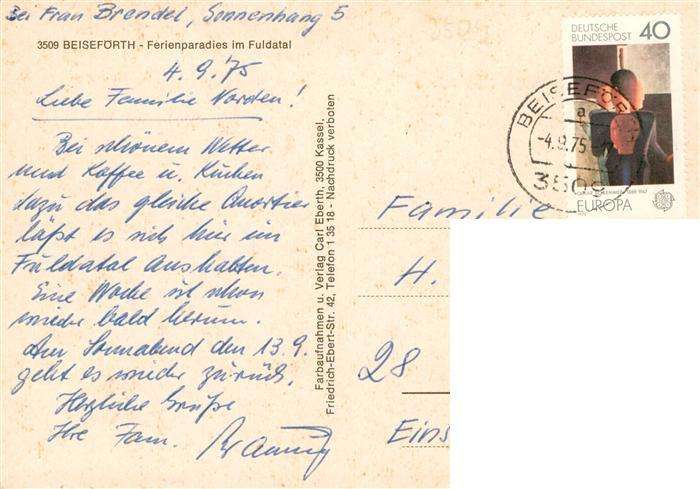 bei Frau Brendel, Sonnenhang 5
3509 BEISEFÖRTH - Ferienparadies im Fuldatal
4.9.'75
Liebe Familie Norden!
Bei schönem Wetter
und Kaffee u. Kuchen
dazu das gleiche Quartier
läßt es sich hier im
Fuldatal aushalten.
Eine Woche ist schon
wieder bald herum.
Am Sonnabend den 13.9.
geht es wieder zurück.
Herzliche Grüße
Ihre Fam.
Farbaufnahmen u. Verlag Carl Eberth, 3500 Kassel,
Friedrich-Ebert-Str. 42, Telefon 1 35 18 - Nachdruck verboten
DEUTSCHE
BUNDESPOST
40
EUROPA
BEISEFÖR
a
-4.9.75
3509
Familie
H.
28
Eins